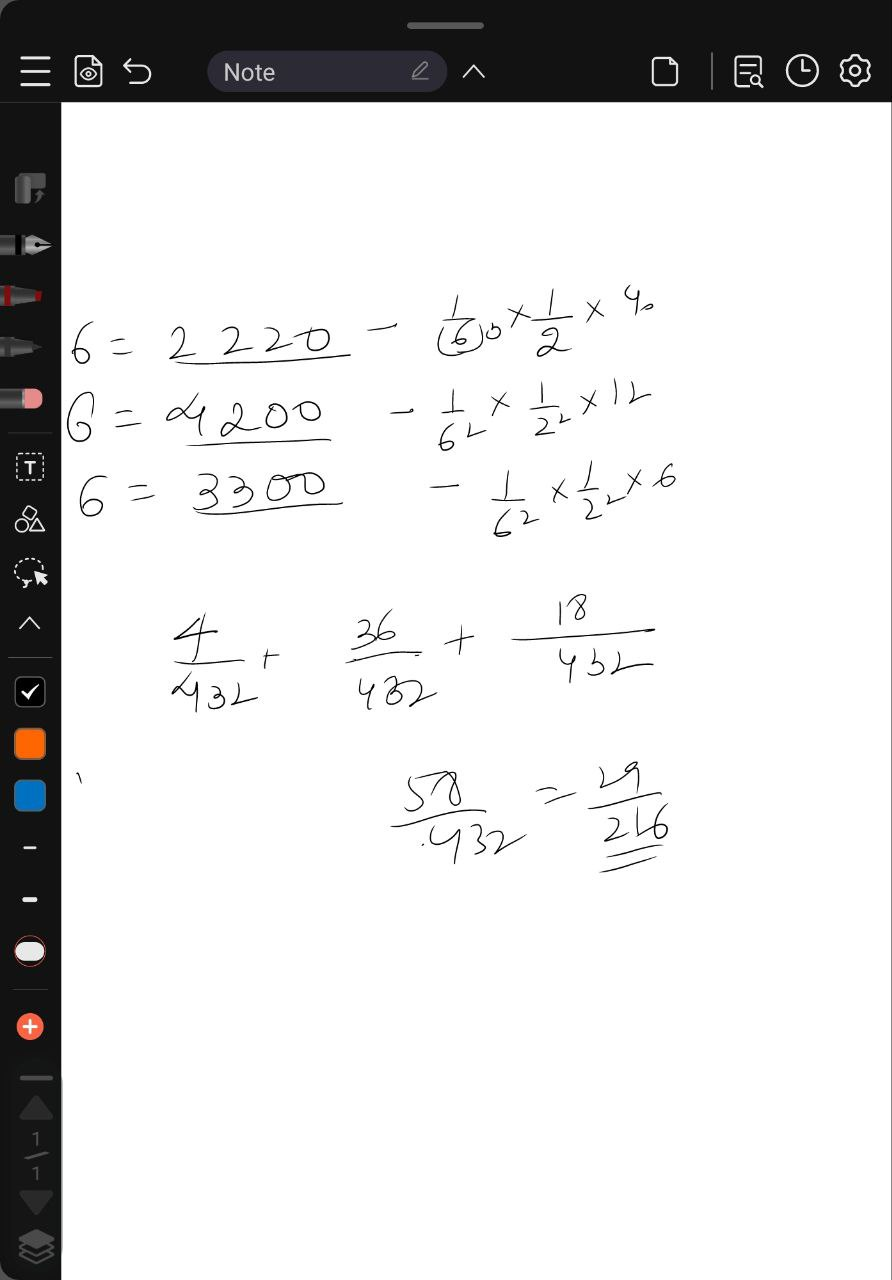 Note
6 = 2 2 2 0 - 1/(6)³ × 1/2 × 4
6 = 4 2 0 0 - 1/6² × 1/2² × 12
6 = 3 3 0 0 - 1/6² × 1/2² × 6
4/432 + 36/432 + 18/432
58/432 = 29/216
T
1
1